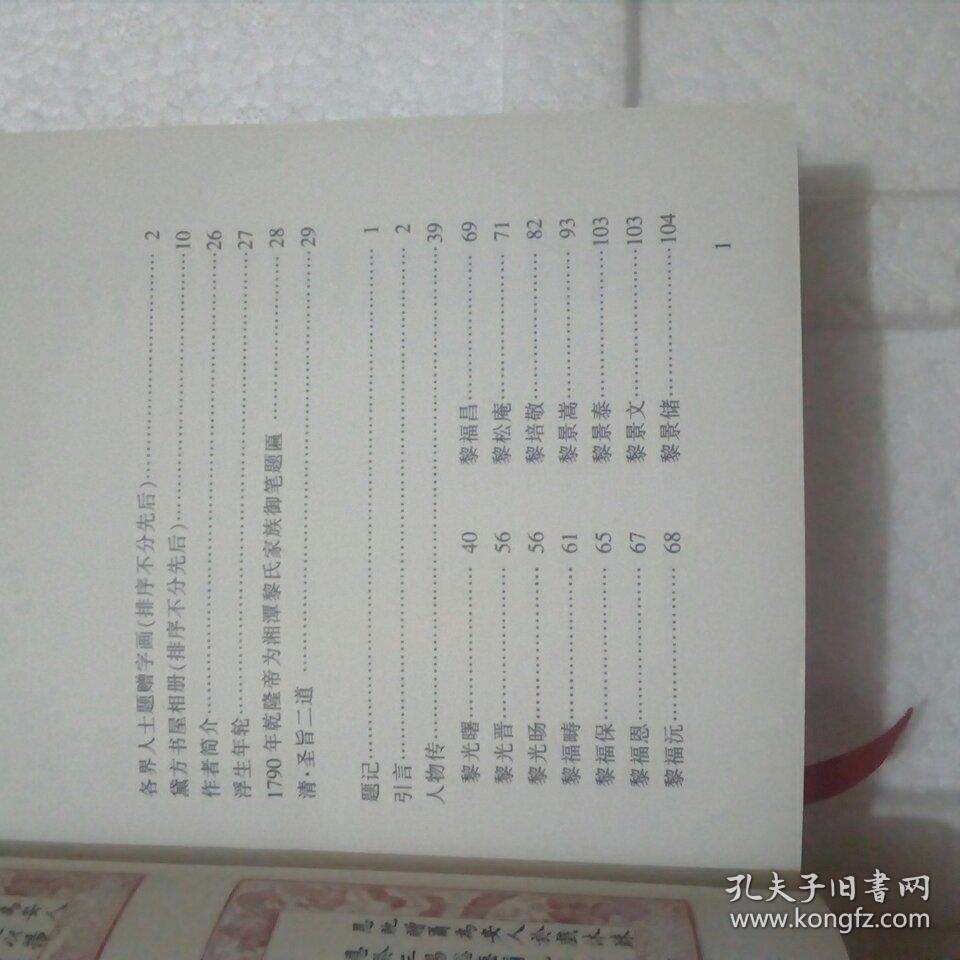 各界人士题赠字画(排序不分先后)……………… 2
黛方书屋相册(排序不分先后)……………………10
作者简介……………………………………………26
浮生年轮……………………………………………27
1790年乾隆帝为湘潭黎氏家族御笔题匾 …………28
清·圣旨二道 ………………………………………29
题记………………………………………………… 1
引言………………………………………………… 2
人物传………………………………………………39
黎光曙……………… 40 黎福昌……………… 69
黎光晋……………… 56 黎松庵……………… 71
黎光旸……………… 56 黎培敬……………… 82
黎福畴……………… 61 黎景嵩……………… 93
黎福保……………… 65 黎景泰………………103
黎福恩……………… 67 黎景文………………103
黎福沅……………… 68 黎景储………………104
1
孔夫子旧書网
www.kongfz.com